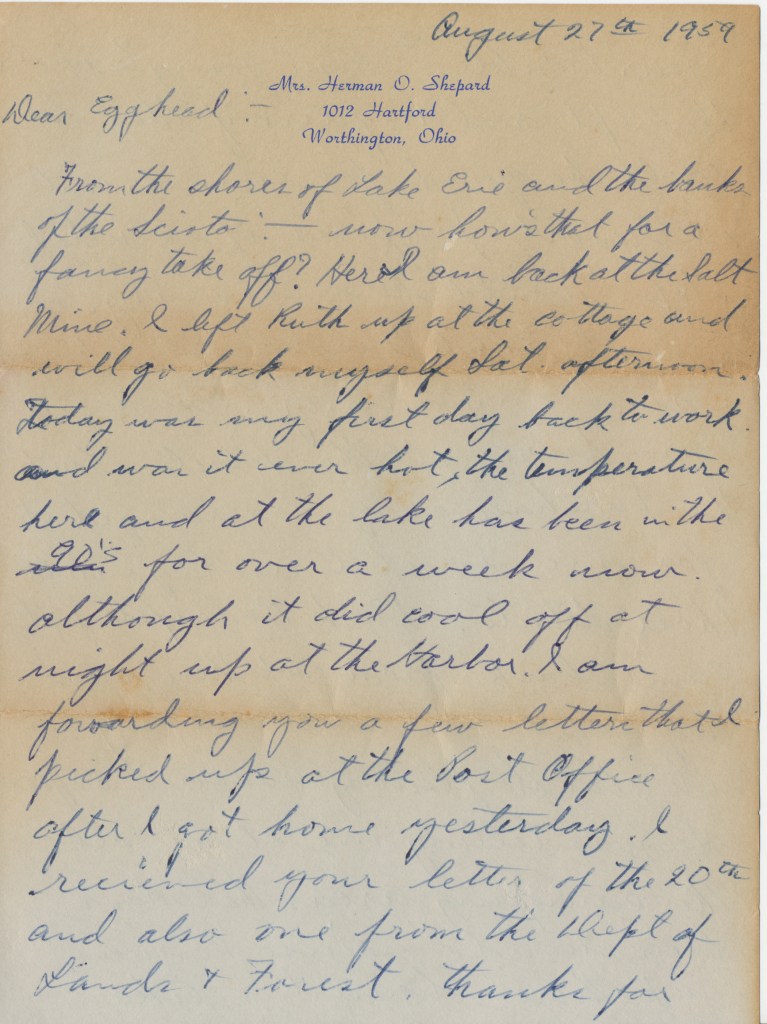 August 27th 1959
Mrs. Herman O. Shepard
1012 Hartford
Worthington, Ohio
Dear Egghead :-
From the shores of Lake Erie and the banks
of the Scioto :- now how's that for a
fancy take off? Here I am back at the Salt
Mine. I left Ruth up at the cottage and
will go back myself Sat. afternoon.
Today was my first day back to work.
and was it ever hot, the temperature
here and at the lake has been in the
90's for over a week now.
although it did cool off at
night up at the Harbor. I am
forwarding you a few letters that I
picked up at the Post Office
after I got home yesterday. I
recieved your letter of the 20th
and also one from the Dept of
Lands & Forest. thanks for